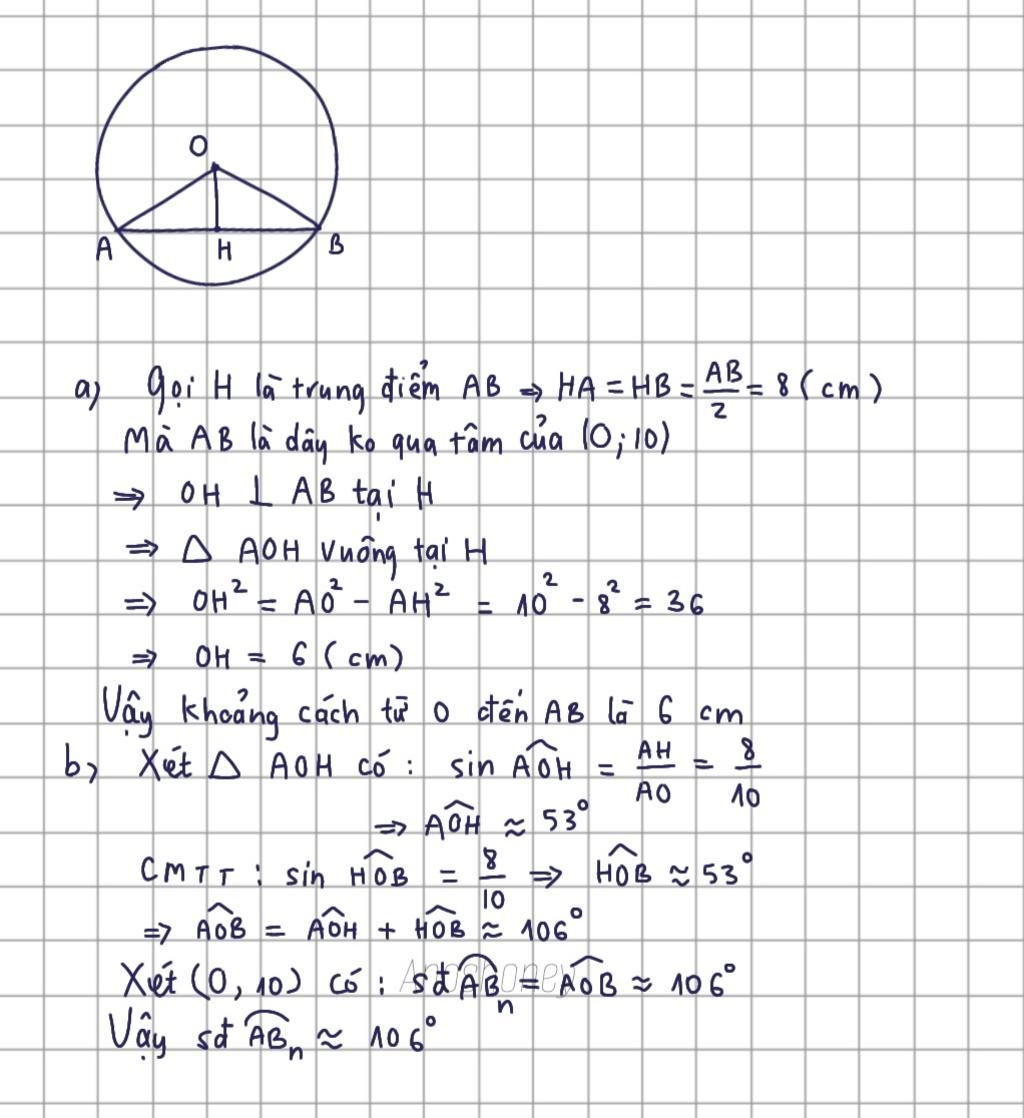 O
A H B
a) Gọi H là trung điểm AB => HA = HB = AB/2 = 8 (cm)
Mà AB là dây ko qua tâm của (O; 10)
=> OH ⊥ AB tại H
=> Δ AOH vuông tại H
=> OH² = AO² - AH² = 10² - 8² = 36
=> OH = 6 (cm)
Vậy khoảng cách từ O đến AB là 6 cm
b) Xét Δ AOH có: sin AÔH = AH/AO = 8/10
=> AÔH ≈ 53°
CMTT: sin HÔB = 8/10 => HÔB ≈ 53°
=> AÔB = AÔH + HÔB ≈ 106°
Xét (O, 10) có: sđ AB⏜n = AÔB ≈ 106°
Vậy sđ AB⏜n ≈ 106°